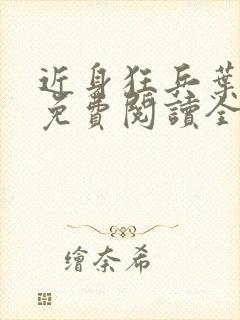 近身狂兵葉
免費閱讀全
繪奈希